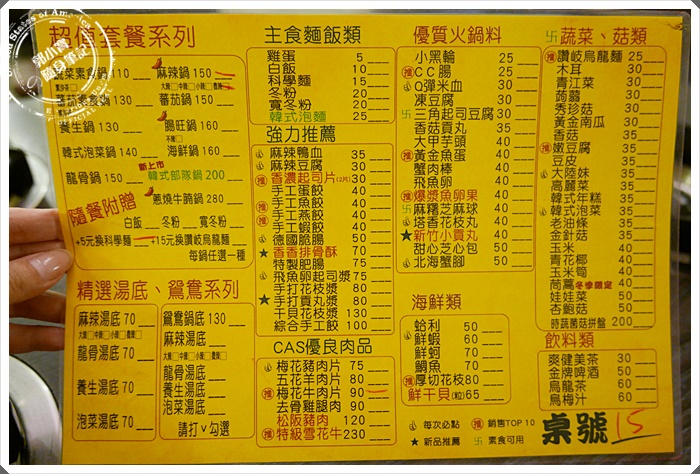 超值套餐系列
蔬菜素食鍋110
麻辣鍋150
大辣 中辣 小辣 微辣
蕃茄素食鍋130
蕃茄鍋150
養生鍋130
腸旺鍋160
不辣
韓式泡菜鍋140
海鮮鍋160
新上市
龍骨鍋150
韓式部隊鍋200
隨餐附贈
蔥燒牛腩鍋280
白飯 冬粉 寬冬粉
+5元換科學麵 +15元換讚岐烏龍麵
每鍋任選一種
精選湯底、鴛鴦系列
麻辣湯底70
大辣 中辣 小辣 微辣
龍骨湯底70
養生湯底70
泡菜湯底70
鴛鴦鍋底130
麻辣湯底
大辣 中辣 小辣 微辣
龍骨湯底
養生湯底
泡菜湯底
請打v勾選
主食麵飯類
雞蛋 5
白飯 10
科學麵 15
冬粉 20
寬冬粉 20
韓式泡麵 25
強力推薦
麻辣鴨血 35
麻辣豆腐 35
推 香濃起司片(2片) 30
手工蛋餃 40
推 手工魚餃 40
推 手工燕餃 40
手工蝦餃 40
德國脆腸 50
★香香排骨酥 70
特製肥腸 75
飛魚卵起司漿 75
手打花枝漿 80
★手打貢丸漿 80
干貝花枝漿 80
綜合手工餃 100
CAS優良肉品
梅花豬肉片 75
五花羊肉片 80
推 梅花牛肉片 90
去骨雞腿肉 90
松阪豬肉 120
推 特級雪花牛 230
優質火鍋料
小黑輪 25
推 CC腸 25
Q彈米血 30
凍豆腐 30
卐三角起司豆腐 30
香菇貢丸 30
大甲芋頭 30
推 黃金魚蛋 30
蟹肉棒 30
飛魚卵 30
推 爆漿魚卵果 30
卐麻糬芝麻球 30
塔香花枝丸 30
★新竹小貢丸 30
甜心芝心包 50
北海蟹腳 50
海鮮類
蛤利 50
鮮蝦 60
鮮蚵 70
鯛魚 70
推 厚切花枝 80
鮮干貝(粒) 65
每次必點
推 銷售TOP 10
★新品推薦
卐 素食可用
卐蔬菜、菇類
推 讚岐烏龍麵 25
木耳 30
青江菜 30
蒟蒻 30
秀珍菇 30
黃金南瓜 30
香菇 30
推 嫩豆腐 30
豆皮 35
大陸妹 35
高麗菜 35
韓式年糕 35
韓式泡菜 35
老油條 35
金針菇 35
玉米 40
青花椰 40
玉米筍 40
茼蒿 冬季限定 40
娃娃菜 50
杏鮑菇 50
時蔬菌菇拼盤 200
飲料類
爽健美茶 30
金牌啤酒 50
烏龍茶 60
烏梅汁 60
桌號 15